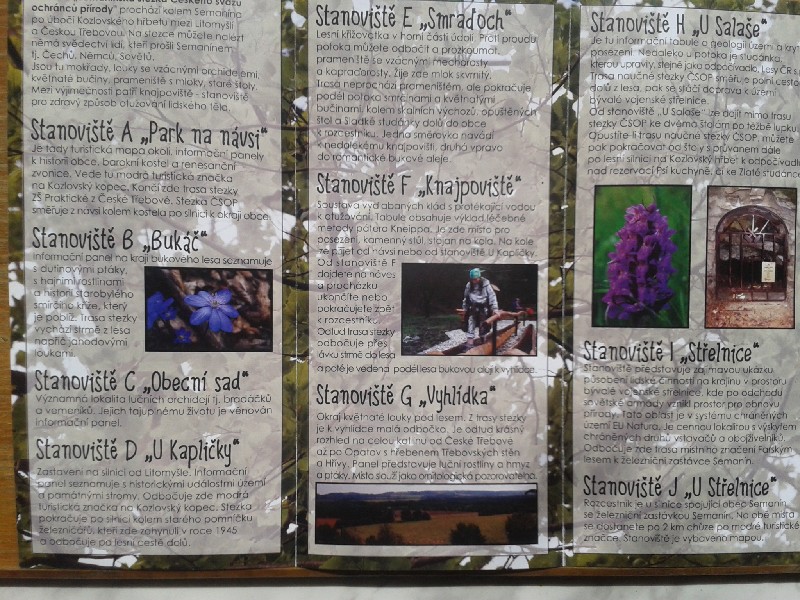 ochránců přírody" prochází kolem Semanína
po úbočí Kozlovského hřbetu mezi Litomyšlí
a Českou Třebovou. Na stezce můžete nalézt
němá svědectví lidí, kteří prošli Semanínem
tj. Čechů, Němců, Sovětů.
Jsou tu mokřady, louky se vzácnými orchidejemi,
květnaté bučiny, prameniště s mloky, staré štoly.
Mezi výjimečnosti patří knajpoviště - stanoviště
pro zdravý způsob otužování lidského těla.
Stanoviště A „Park na návsi"
Je tady turistická mapa okolí, informační panely
k historii obce, barokní kostel a renesanční
zvonice. Vede tu modrá turistická značka
na Kozlovský kopec. Končí zde trasa stezky
ZŠ Praktické z České Třebové. Stezka ČSOP
směřuje z návsi kolem kostela po silnici k okraji obce.
Stanoviště B „Bukáč"
Informační panel na kraji bukového lesa seznamuje
s dutinovými ptáky,
s hajními rostlinami
a historií starobylého
smírčího kříže, který
je poblíž. Trasa stezky
vychází strmě z lesa
napříč jahodovými
loukami.
Stanoviště C „Obecní sad"
Významná lokalita lučních orchidejí tj. prstnatců
a vemeníků. Jejich tajuplnému životu je věnován
informační panel.
Stanoviště D „U Kapličky"
Zastavení na silnici od Litomyšle. Informační
panel seznamuje s historickými událostmi území
a památnými stromy. Odbočuje zde modrá
turistická značka na Kozlovský kopec. Stezka
pokračuje po silnici kolem starého pomníčku
železničářů, kteří zde zahynuli v roce 1945
a odbočuje po lesní cestě dolů.
Stanoviště E „Smraďoch"
Lesní křižovatka v horní části údolí. Proti proudu
potoka můžete odbočit a prozkoumat
prameniště se vzácnými mechorosty
a kapraďorosty. Žije zde mlok skvrnitý.
Trasa neprochází prameništěm, ale pokračuje
podél potoka smrčinami a květnatými
bučinami, kolem skalních výchozů, opuštěných
štol a sladké studánky dolů do obce
k rozcestníku. Jedna směrovka navádí
k nedalekému knajpovišti, druhá vpravo
do romantické bukové aleje.
Stanoviště F „Knajpoviště"
Soustava vydlabaných klád s protékající vodou
k otužování. Tabule obsahuje výklad léčebné
metody pátera Kneippa. Je zde místo pro
posezení, kamenný stůl, stojan na kola. Na kole
lze přijet od návsi nebo od stanoviště U Kapličky.
Od stanoviště F
dojdete na náves
a procházku
ukončíte nebo
pokračujete zpět
k rozcestníku.
Odtud trasa stezky
odbočuje přes
lávku strmě do lesa
a poté vede podél lesa bukovou alejí k vyhlídce.
Stanoviště G „Vyhlídka"
Okraj květnaté louky pod lesem. Z trasy stezky
je k vyhlídce malá odbočka. Je odtud krásný
rozhled na celou kotlinu od České Třebové
až po Opatov s hřebenem Třebovských stěn
a Hřívy. Panel představuje luční rostliny a hmyz
a ptáky. Místo slouží jako ornitologická pozorovatelna.
Stanoviště H „U Salaše"
Je tu informační tabule o geologii území a krytý
posezení. Nedaleko u potoka je studánka,
kterou upravily, stejně jako odpočívadlo, Lesy ČR s.p.
Trasa naučné stezky ČSOP směřuje po lesní cestě
dolů z lesa, pak se stáčí doprava k území
bývalé vojenské střelnice.
Od stanoviště „U Salaše" lze dojít mimo trasu
stezky ČSOP ke dvěma štolám po těžbě lupku.
Opustíte-li trasu naučné stezky ČSOP, můžete
pak pokračovat od štoly s průvanem dále
po lesní silnici na Kozlovský hřbet k odpočívadlu
nad rezervací Psí kuchyně, či ke Zlaté studánce
Stanoviště I „Střelnice"
Stanoviště představuje zajímavou ukázku
působení lidské činnosti na krajinu v prostoru
bývalé vojenské střelnice, kde po odchodu
sovětské armády vznikl prostor pro obnovu
přírody. Tato oblast je v systému chráněných
území EU Natura. Je cennou lokalitou s výskytem
chráněných druhů vstavačů a obojživelníků.
Odbočuje zde trasa místního značení Farským
lesem k železniční zastávce Semanín.
Stanoviště J „U Střelnice"
Rozcestník je u silnice spojující obec Semanín
se železniční zastávkou Semanín. Na obě místa
se dostanete po 2 km chůze po modré turistické
značce. Stanoviště je vybaveno mapou.